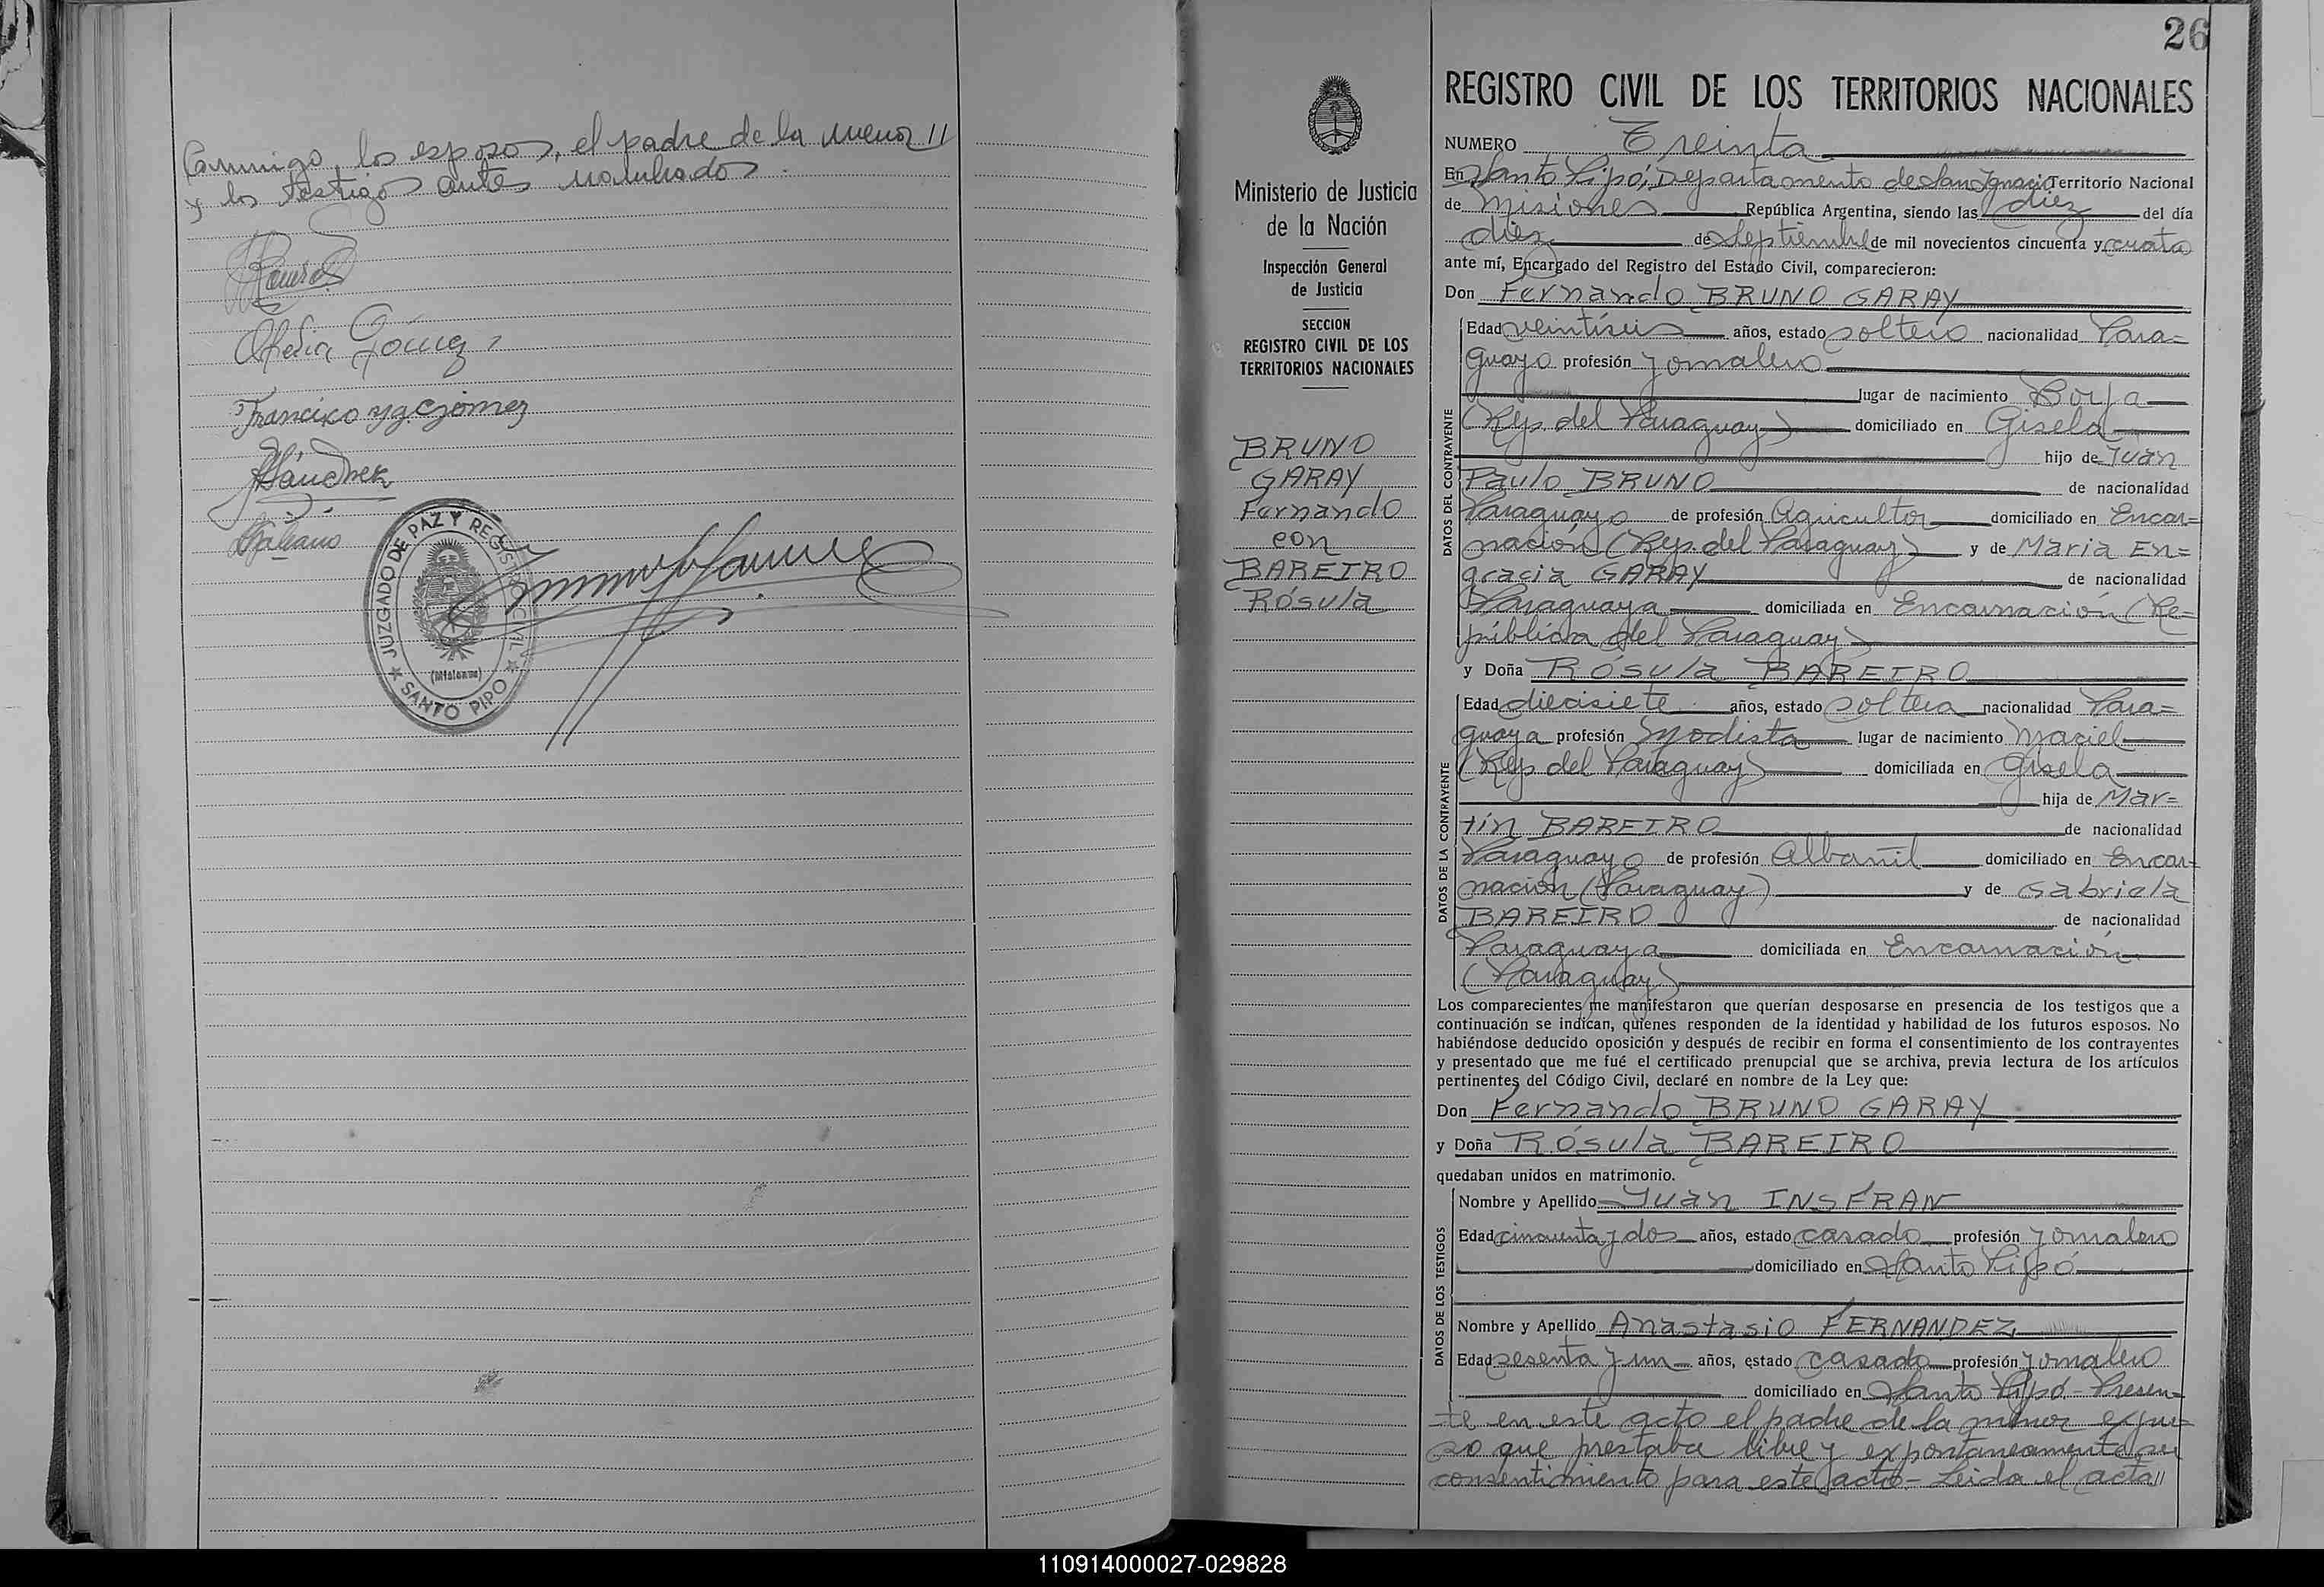 Conmigo, los esposos, el padre de la menor //
y los testigos antes nombrados.
Ofelia Gómez
Francisco y g. Gómez
JSánchez
Galiano
JUZGADO DE PAZ Y REGISTRO CIVIL
(Misiones)
SANTO PIPO
26
REGISTRO CIVIL DE LOS TERRITORIOS NACIONALES
Ministerio de Justicia
de la Nación
Inspección General
de Justicia
SECCION
REGISTRO CIVIL DE LOS
TERRITORIOS NACIONALES
BRUNO
GARAY
Fernando
con
BAREIRO
Rósula
NUMERO Treinta
En Santo Pipó, Departamento de San Ignacio Territorio Nacional
de Misiones República Argentina, siendo las diez del día
diez de Septiembre de mil novecientos cincuenta y cuatro
ante mí, Encargado del Registro del Estado Civil, comparecieron:
Don Fernando BRUNO GARAY
DATOS DEL CONTRAYENTE
Edad veintiseis años, estado soltero nacionalidad Para=
guayo profesión Jornalero
lugar de nacimiento Borja
(Rep. del Paraguay) domiciliado en Gisela
hijo de Juan
Paulo BRUNO de nacionalidad
Paraguayo de profesión Agricultor domiciliado en Encar=
nación (Rep. del Paraguay) y de Maria En=
gracia GARAY de nacionalidad
Paraguaya domiciliada en Encarnación (Re=
pública del Paraguay)
y Doña Rósula BAREIRO
DATOS DE LA CONTRAYENTE
Edad diecisiete años, estado soltera nacionalidad Para=
guaya profesión Modista lugar de nacimiento Maciel
(Rep. del Paraguay) domiciliada en Gisela
hija de Mar=
tín BAREIRO de nacionalidad
Paraguayo de profesión Albañil domiciliado en Encar-
nación (Paraguay) y de Gabriela
BAREIRO de nacionalidad
Paraguaya domiciliada en Encarnación
(Paraguay)
Los comparecientes me manifestaron que querían desposarse en presencia de los testigos que a
continuación se indican, quienes responden de la identidad y habilidad de los futuros esposos. No
habiéndose deducido oposición y después de recibir en forma el consentimiento de los contrayentes
y presentado que me fué el certificado prenupcial que se archiva, previa lectura de los artículos
pertinentes del Código Civil, declaré en nombre de la Ley que:
Don Fernando BRUNO GARAY
y Doña Rósula BAREIRO
quedaban unidos en matrimonio.
DATOS DE LOS TESTIGOS
Nombre y Apellido Juan INSFRAN
Edad cincuenta y dos años, estado casado profesión Jornalero
domiciliado en Santo Pipó
Nombre y Apellido Anastasio FERNANDEZ
Edad sesenta y un años, estado casado profesión Jornalero
domiciliado en Santo Pipó - Presen=
te en este acto el padre de la menor expre=
so que prestaba libre y expontaneamente su
consentimiento para este acto - Leida el acta //
110914000027-029828